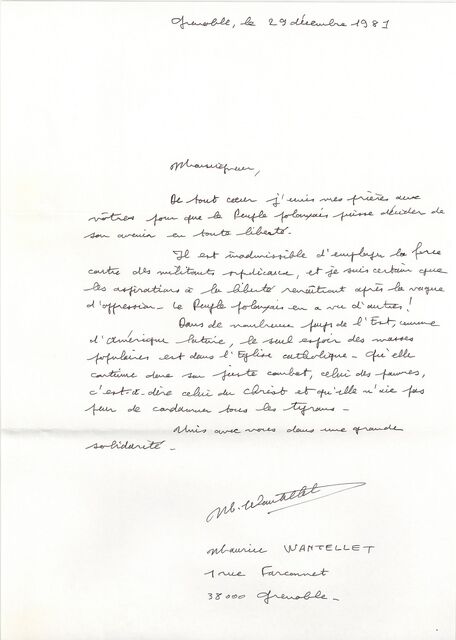 Grenoble, le 29 décembre 1981
Monseigneur,
De tout coeur j'unis mes prières aux
vôtres pour que le Peuple polonais puisse décider de
son avenir en toute liberté.
Il est inadmissible d'employer la force
contre des militants syndicaux, et je suis certain que
les aspirations à la liberté renaîtront après la vague
d'oppression - Le Peuple polonais en a vu d'autres !
Dans de nombreux pays de l'Est, comme
d'Amérique latine, le seul espoir des masses
populaires est dans l'Eglise catholique - Qu'elle
continue donc son juste combat, celui des pauvres,
c'est-à-dire celui du Christ et qu'elle n'aie pas
peur de condamner tous les tyrans -
Unis avec vous dans une grande
solidarité -
M. Wantellet
Maurice WANTELLET
1 rue Farconnet
38000 Grenoble -